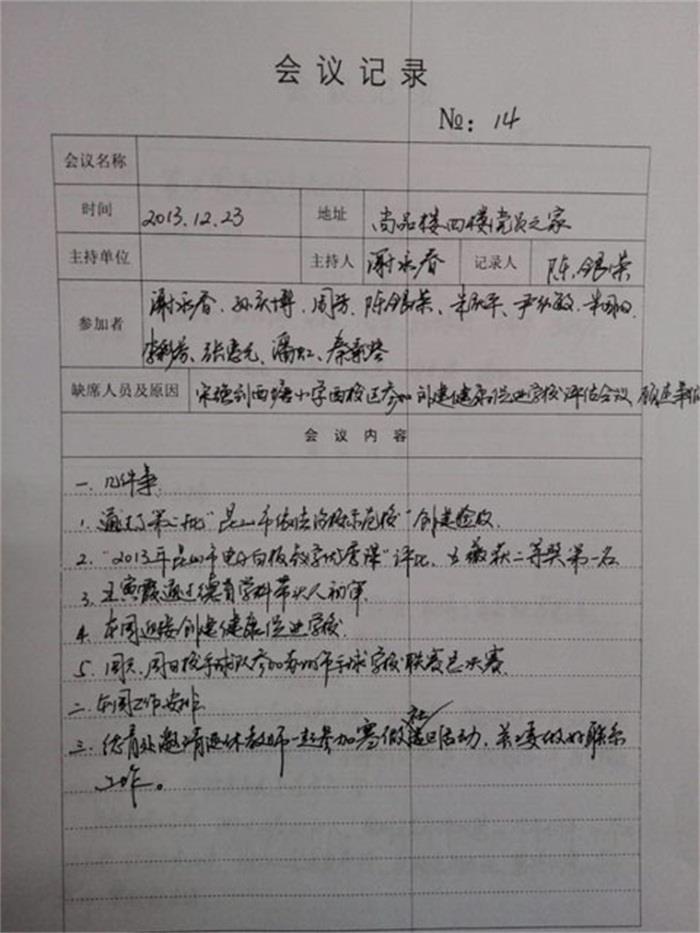 会议记录
№: 14
会议名称
时间 2013.12.23 地址 尚品楼四楼党员之家
主持单位 主持人 谢永香 记录人 陈银荣
参加者 谢永香、孙庆博、周芳、陈银荣、
张惠元、潘虹、
缺席人员及原因 西塘小学西校区参加创建健康促进学校评估会议
会议内容
一. 几件事
1. 通过了第一批“昆山市依法治校示范校”创建验收.
2. “2013年昆山市电子白板教学优秀课”评比, 获二等奖第一名
3. 王寅霞通过德育学科带头人初审.
4. 本周迎接创建健康促进学校.
5. 周六、周日校手球队参加苏州市手球学校联赛总决赛.
二. 本周工作安排
三. 德育处邀请退休教师一起参加寒假社区活动, 关工委做好联系
工作。